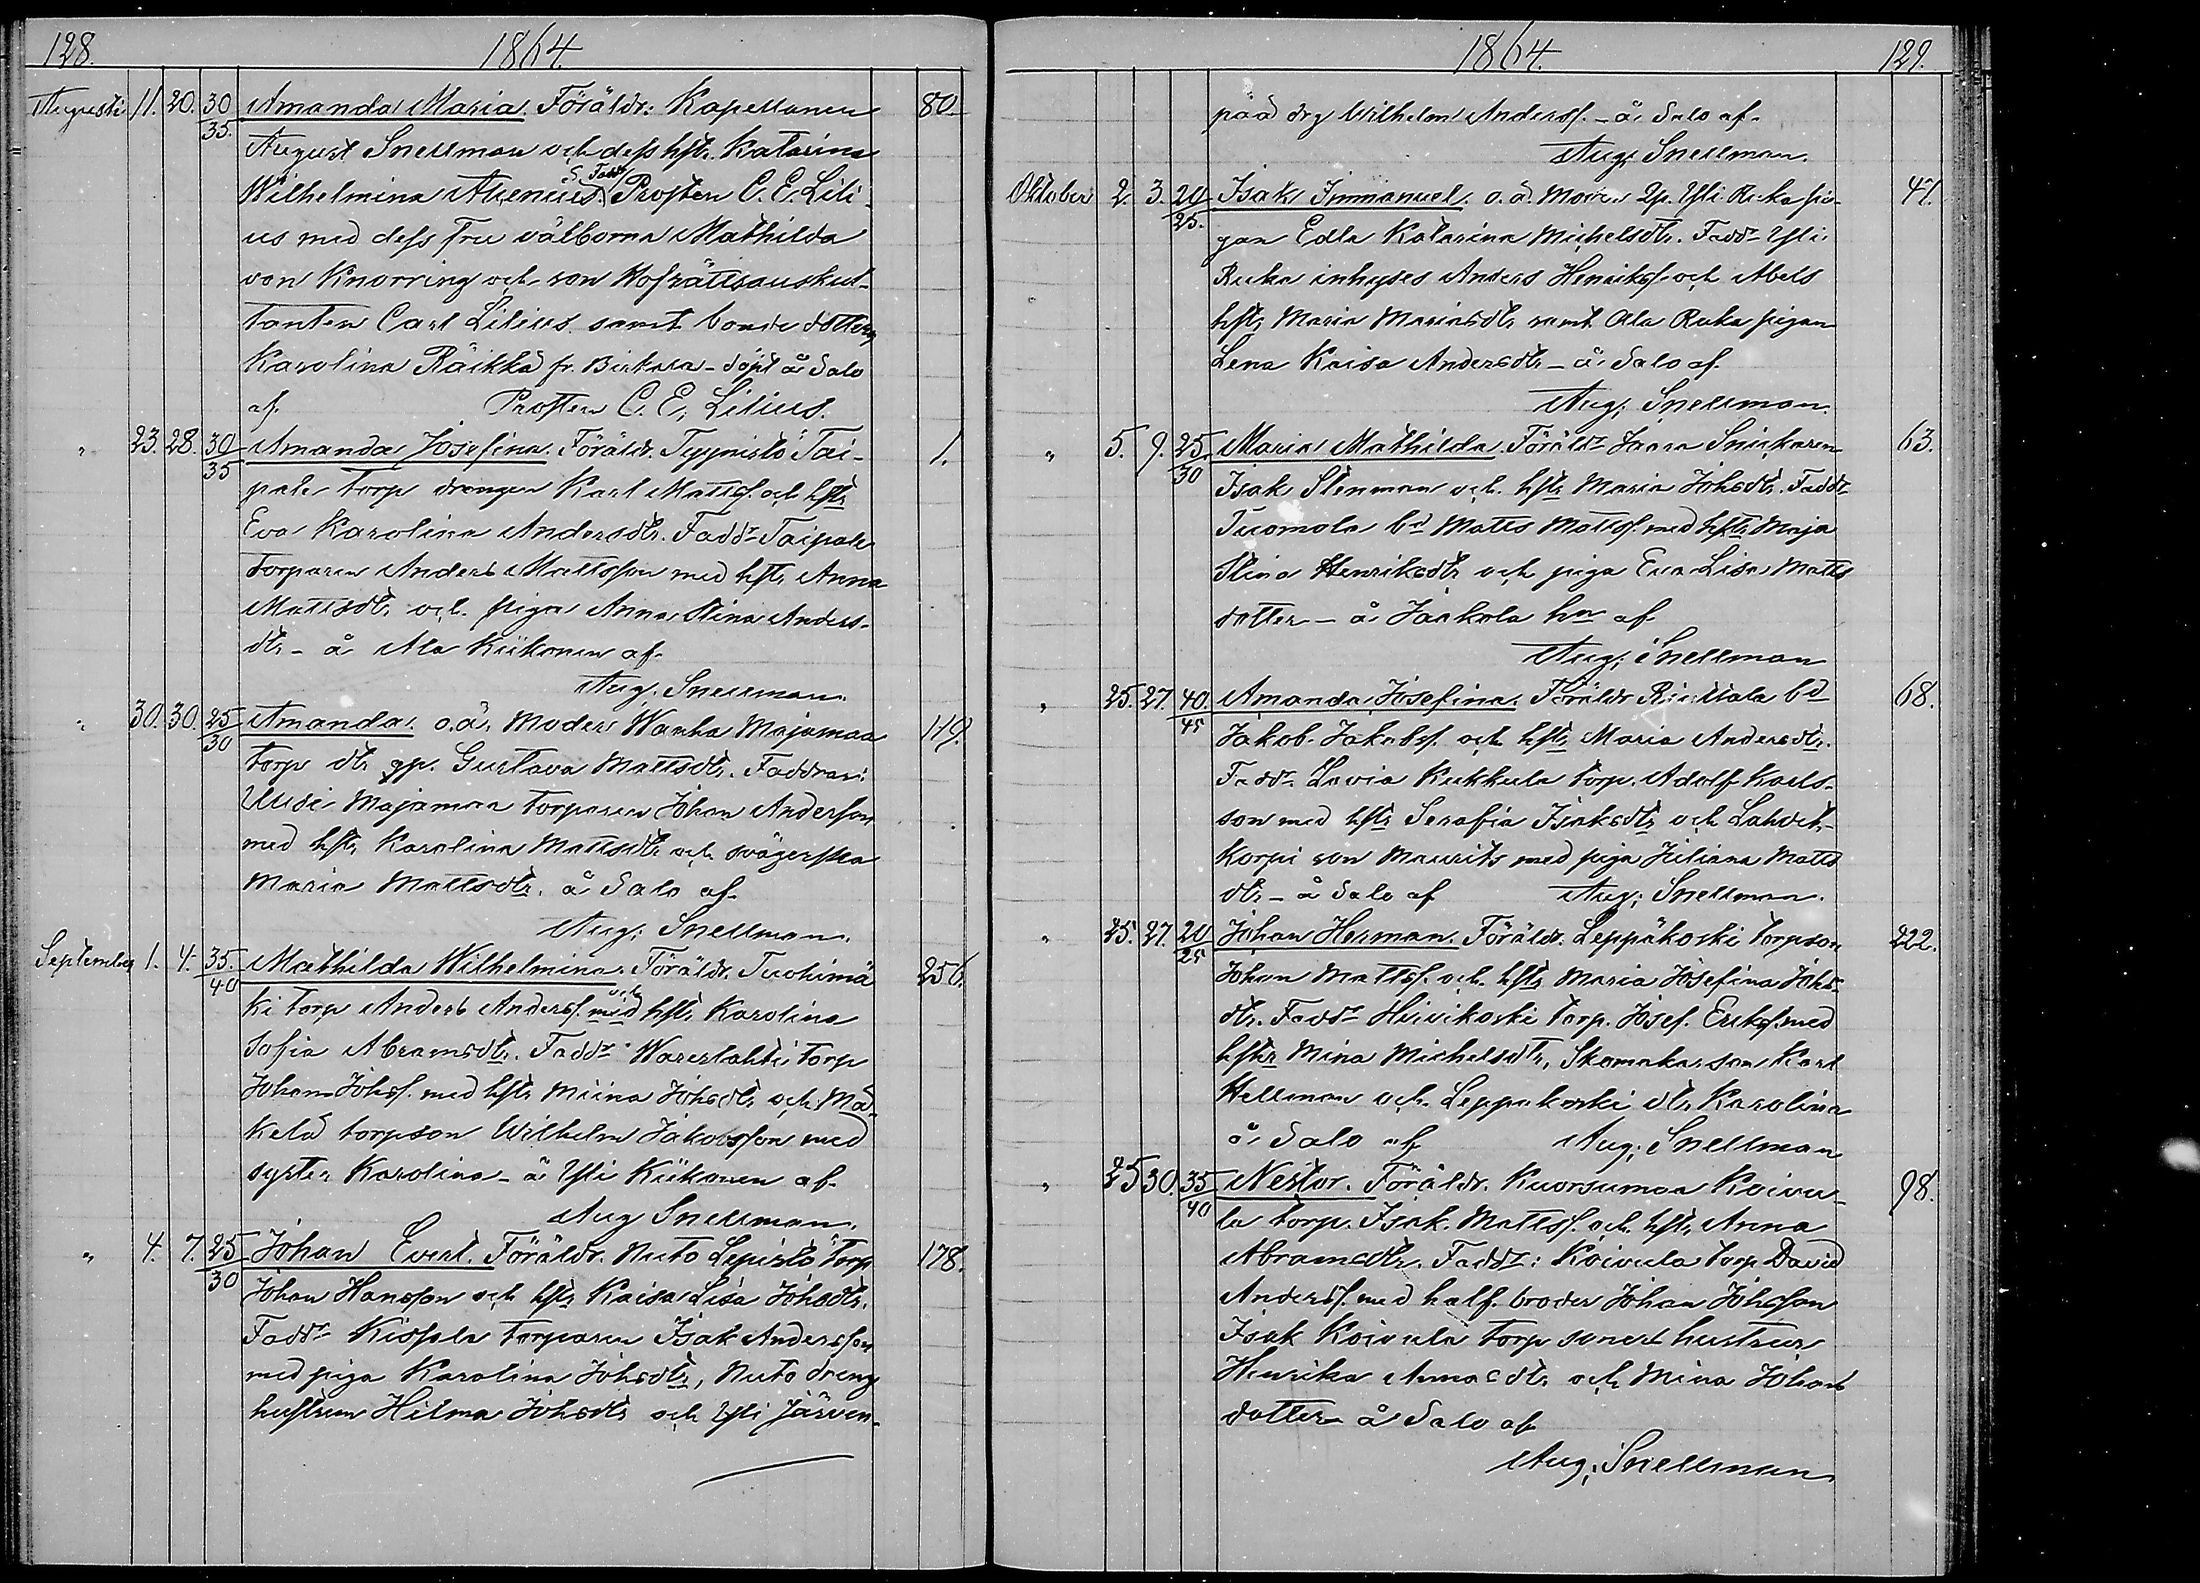 128. 1864.
Augusti 11. 20. 30/35. Amanda Maria. Föräldr: Kapellanen 80
August Snellman och dess hstr. Katarina
Wilhelmina Alenius. S. Fadd. Prosten C. E. Lili-
us med dess fru välborna Mathilda
von Knorring och son Hofrättsauskul-
tanten Carl Lilius samt bonde dottern
Karolina Räikkä fr. Birkala - döpt å Salo
af. Prosten C. E. Lilius.
" 23. 28. 30/35 Amanda Josefina. Föräldr. Tyynistö Tai- 1.
pale torp drengen Karl Mattss. och hstr
Eva Karolina Andersdtr. Faddr Taipale
torparen Anders Mattsson med hstr Anna
Mattsdtr och piga Anna Stina Anders-
dtr - å Ala Kiikonen af
Aug. Snellman.
" 30. 30. 25/30 Amanda. o.ä. Moder Wanha Majamaa 119.
torp dtr gp. Gustava Mattsdtr. Faddrar:
Uusi Majamaa torparen Johan Andersson
med hstr Karolina Mattsdtr och svägerska
Maria Mattsdtr. å Salo af
Aug. Snellman.
September 1. 4. 35./40 Mathilda Wilhelmina. Föräldr. Tuohimä 256.
ki torp Anders Anderss. med och hstr Karolina
Sofia Abramsdtr. Faddr Warestahti torp
Johan Johss. med hstr Miina Johsdtr och Mä-
kelä torpson Wilhelm Jakobsson med
syster Karolina - å Yli Kiikonen af
Aug Snellman.
" 4. 7. 25/30 Johan Evert. Föräldr. Nuto Lepistö torp 178.
Johan Hansson och hstr Kaisa Lisa Johsdtr.
Faddr Kispala torparen Isak Andersson
med piga Karolina Johsdtr, Nuto dreng
hustrun Hilma Johsdtr och Yli Järven-
1864. 129.
pää drg Wilhelm Anderss. - å Salo af
Aug. Snellman.
Oktober 2. 3. 20/25. Isak Immanuel. o.ä. Moder Yli Ruka pi- 47.
gan Edla Katarina Michelsdtr. Faddr Yli
Ruka inhyses Anders Henrikss. och Abels
hstr Maria Mariasdtr samt Ala Ruka pigan
Lena Kaisa Andersdtr - å Salo af
Aug. Snellman.
" 5. 9. 25./30 Maria Mathilda. Föräldr Jaara Snickaren 63.
Isak Stenman och hstr Maria Johsdtr. Faddr
Tuomola bd Matts Mattss. med hstr Maja
Stina Henriksdtr och piga Eva Lisa Matts
dotter - å Jaakola hn af
Aug. Snellman
" 25. 27. 40./45 Amanda Josefina. Föräldr bd 68.
Jakob Jakobss. och hstr Maria Andersdtr.
Faddr Lavia Kukkula torp. Adolf Karls-
son med hstr Serafia Isaksdtr och Lahdek-
korpi son Maurits med piga Juliana Matts
dtr - å Salo af Aug. Snellman.
" 25. 27. 20/25 Johan Herman. Föräldr. Leppäkoski torpson 222.
Johan Mattss. och hstr Maria Josefina Johs-
dtr. Faddr Hiivikoski torp. Josef. Erikss. med
hstr Mina Michelsdtr, Skomakar son Karl
Hellman och Leppäkoski dtr Karolina
å Salo af Aug. Snellman
" 25 30. 35/40 Nestor. Föräldr. Kuorsumaa Koivu- 98.
la torp. Isak Mattss. och hstr Anna
Abramsdtr. Faddr: Koivula torp David
Anderss. med half. broder Johan Johsson
Isak Koivula torp sonens hustrur
Henrika Annasdtr och Mina Johans
dotter å Salo af
Aug. Snellman